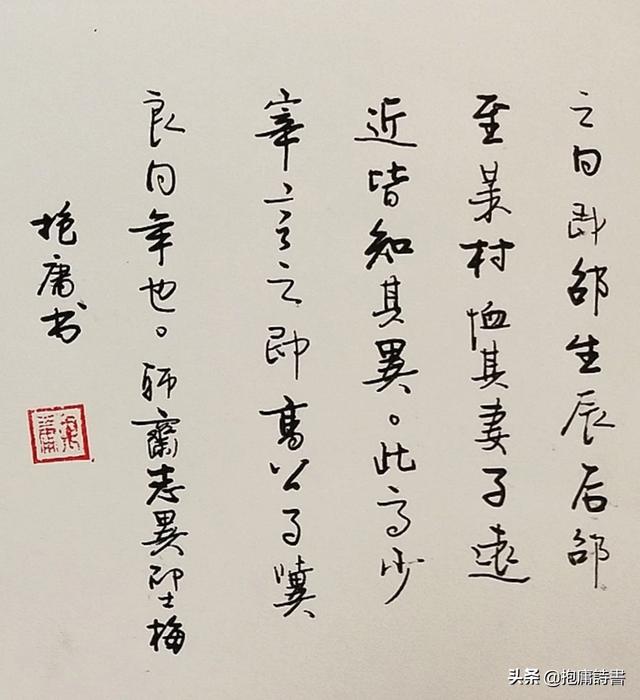 之日即邵生辰后邵
至某村恤其妻子遠
近皆知其異。此高少
宰言之即高公子驥
良同年也。聊齋志異邵士梅
抱庸书
头条 @抱庸詩書